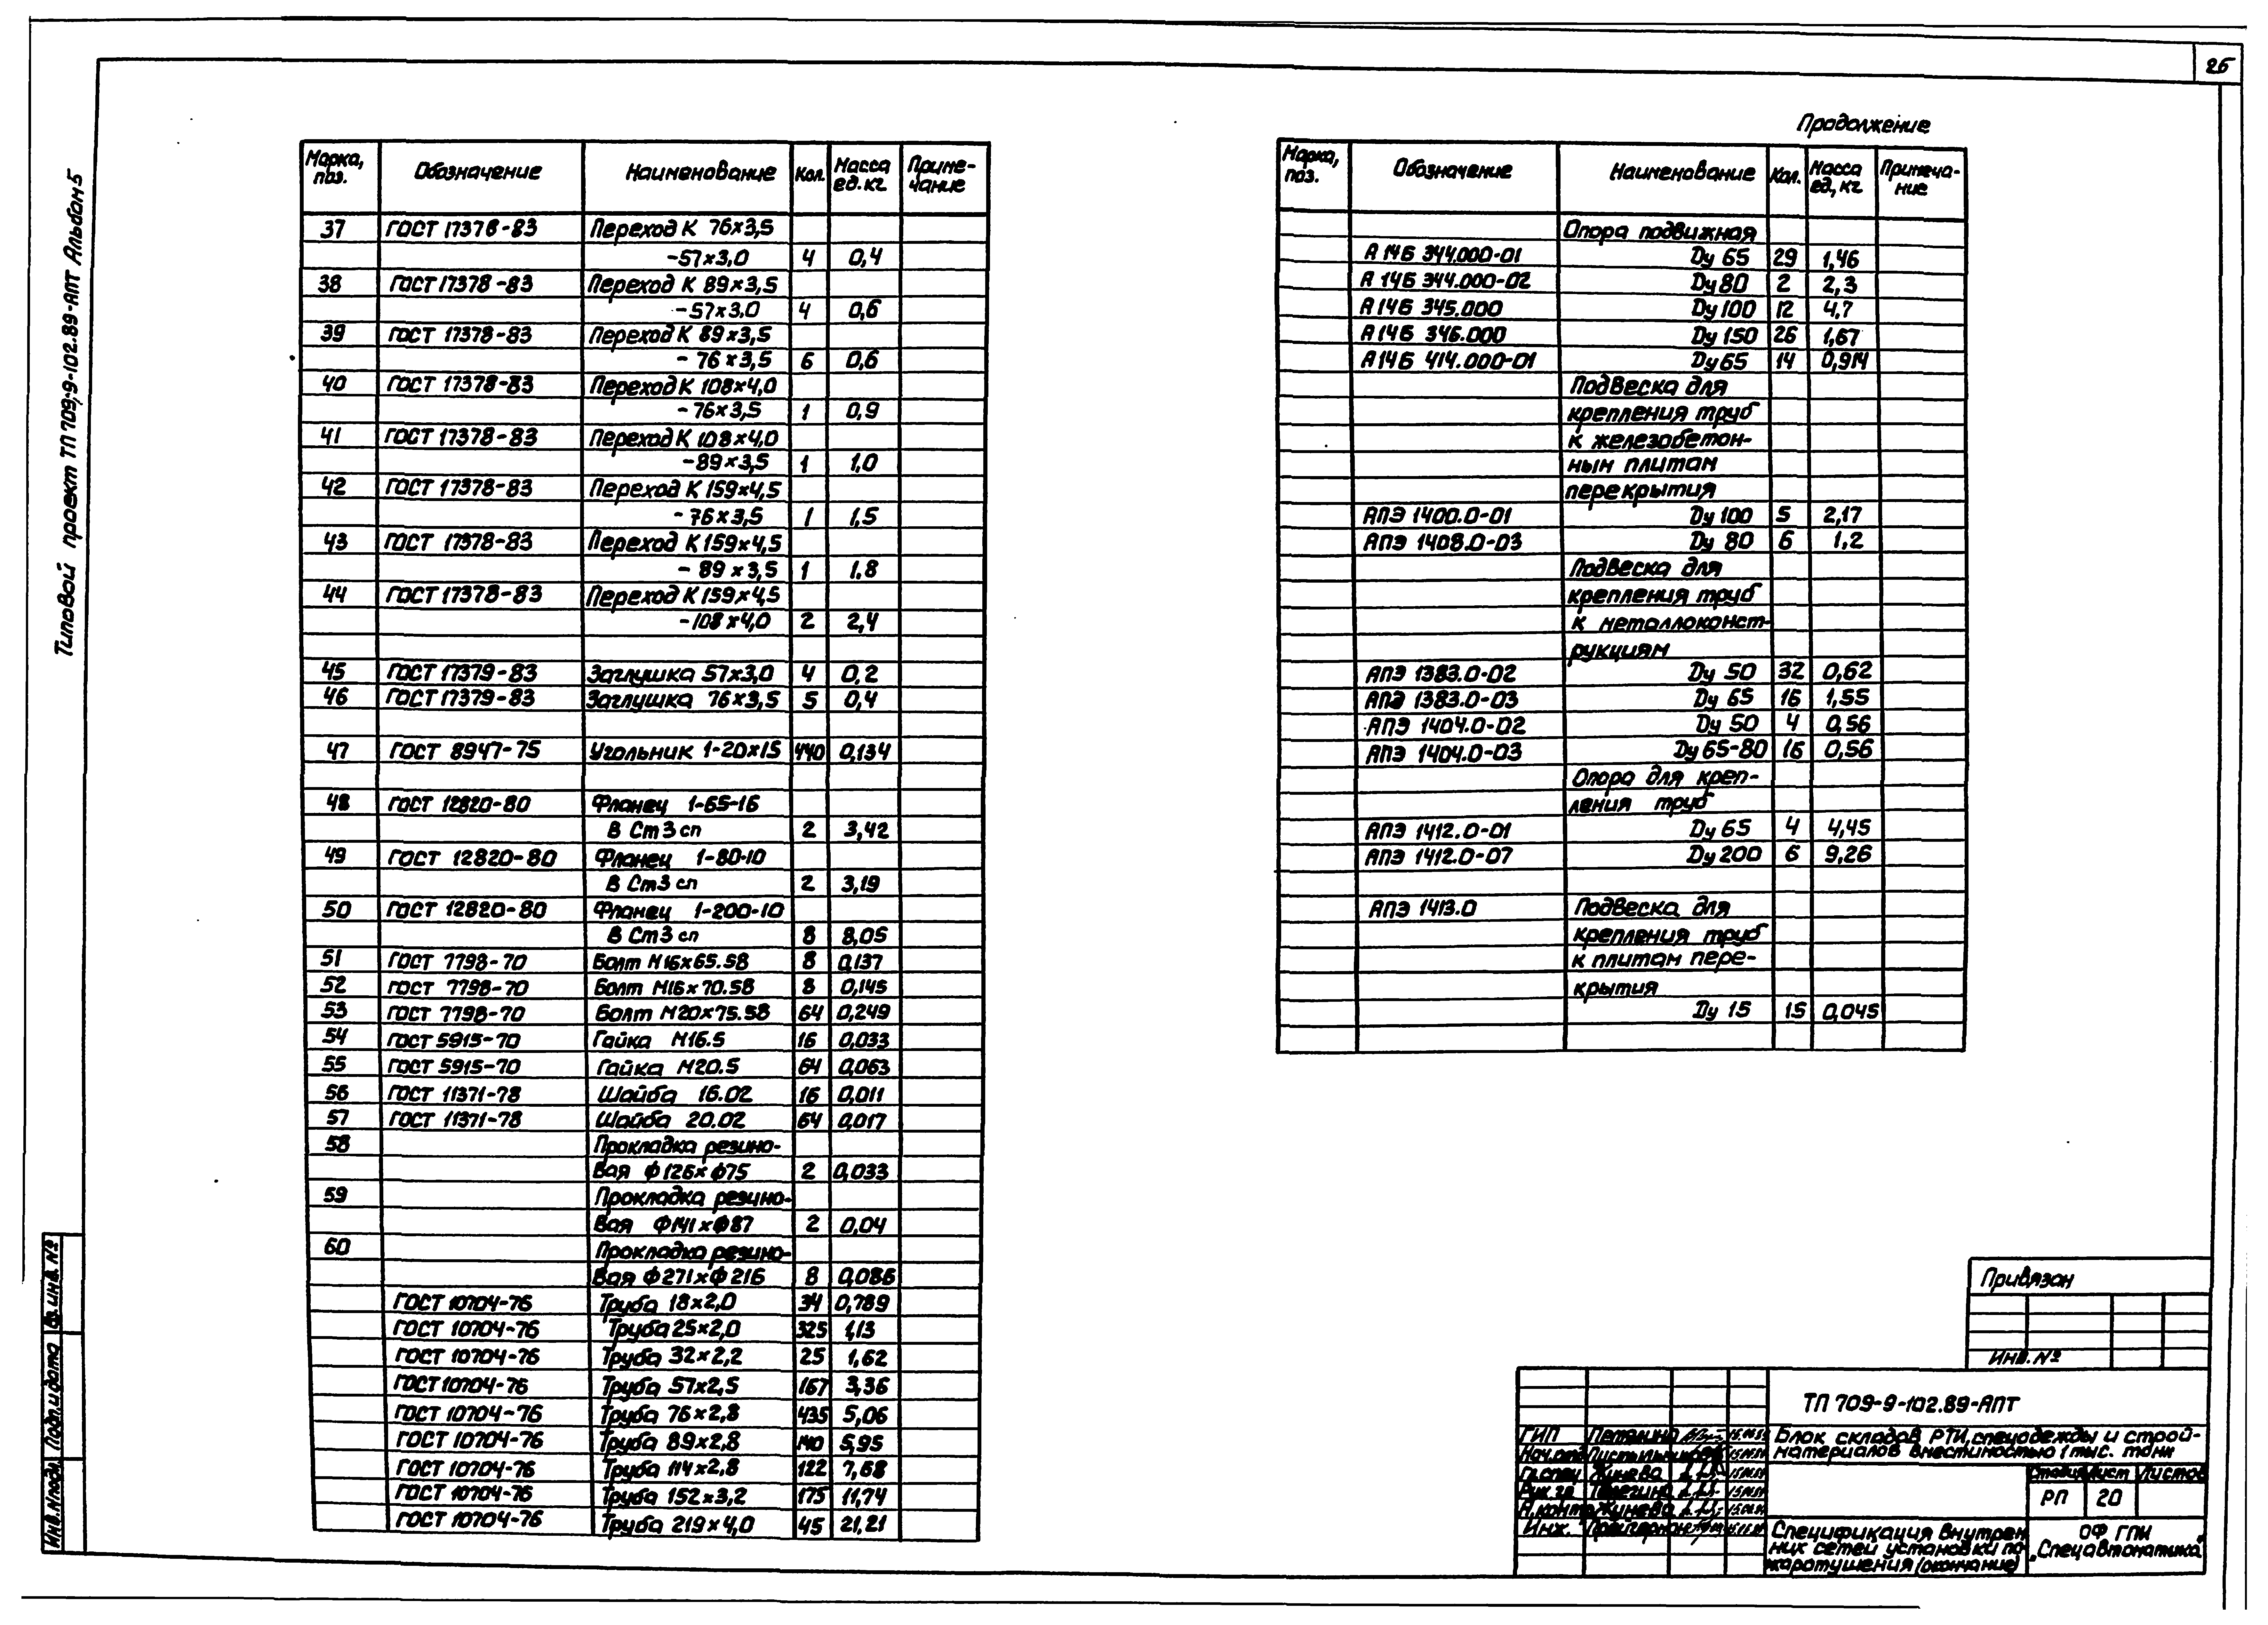 26
Типовой проект ТП 709;9-102.89-АПТ Альбом 5
Марка, поз. Обозначение Наименование Кол. Масса ед. кг Приме-чание
37 ГОСТ 17378-83 Переход К 76×3,5
-57×3,0 4 0,4
38 ГОСТ 17378-83 Переход К 89×3,5
-57×3,0 4 0,6
39 ГОСТ 17378-83 Переход К 89×3,5
- 76×3,5 6 0,6
40 ГОСТ 17378-83 Переход К 108×4,0
- 76×3,5 1 0,9
41 ГОСТ 17378-83 Переход К 108×4,0
-89×3,5 1 1,0
42 ГОСТ 17378-83 Переход К 159×4,5
- 76×3,5 1 1,5
43 ГОСТ 17378-83 Переход К 159×4,5
- 89×3,5 1 1,8
44 ГОСТ 17378-83 Переход К 159×4,5
-108×4,0 2 2,4
45 ГОСТ 17379-83 Заглушка 57×3,0 4 0,2
46 ГОСТ 17379-83 Заглушка 76×3,5 5 0,4
47 ГОСТ 8947-75 Угольник 1-20×15 440 0,134
48 ГОСТ 12820-80 Фланец 1-65-16
В Ст3сп 2 3,42
49 ГОСТ 12820-80 Фланец 1-80-10
В Ст3сп 2 3,19
50 ГОСТ 12820-80 Фланец 1-200-10
В Ст3сп 8 8,05
51 ГОСТ 7798-70 Болт М16×65.58 8 0,137
52 ГОСТ 7798-70 Болт М16×70.58 8 0,145
53 ГОСТ 7798-70 Болт М20×75.58 64 0,249
54 ГОСТ 5915-70 Гайка М16.5 16 0,033
55 ГОСТ 5915-70 Гайка М20.5 64 0,063
56 ГОСТ 11371-78 Шайба 16.02 16 0,011
57 ГОСТ 11371-78 Шайба 20.02 64 0,017
58 Прокладка резино-
вая ф126×ф75 2 0,033
59 Прокладка резино-
вая ф141×ф87 2 0,04
60 Прокладка резино-
вая ф271×ф216 8 0,086
ГОСТ 10704-76 Труба 18×2,0 34 0,789
ГОСТ 10704-76 Труба 25×2,0 325 1,13
ГОСТ 10704-76 Труба 32×2,2 25 1,62
ГОСТ 10704-76 Труба 57×2,5 167 3,36
ГОСТ 10704-76 Труба 76×2,8 435 5,06
ГОСТ 10704-76 Труба 89×2,8 140 5,95
ГОСТ 10704-76 Труба 114×2,8 122 7,68
ГОСТ 10704-76 Труба 152×3,2 175 11,74
ГОСТ 10704-76 Труба 219×4,0 45 21,21
Продолжение
Марка, поз. Обозначение Наименование Кол. Масса ед, кг Примеча-ние
Опора подвижная
А 14Б 344.000-01 Dу 65 29 1,46
А 14Б 344.000-02 Dу 80 2 2,3
А 14Б 345.000 Dу 100 12 4,7
А 14Б 346.000 Dу 150 26 1,67
А 14Б 414.000-01 Dу 65 14 0,914
Подвеска для
крепления труб
к железобетон-
ным плитам
перекрытия
АПЭ 1400.0-01 Dу 100 5 2,17
АПЭ 1408.0-03 Dу 80 6 1,2
Подвеска для
крепления труб
к металлоконст-
рукциям
АПЭ 1383.0-02 Dу 50 32 0,62
АПЭ 1383.0-03 Dу 65 16 1,55
АПЭ 1404.0-02 Dу 50 4 0,56
АПЭ 1404.0-03 Dу 65-80 16 0,56
Опора для креп-
ления труб
АПЭ 1412.0-01 Dу 65 4 4,45
АПЭ 1412.0-07 Dу 200 6 9,26
АПЭ 1413.0 Подвеска для
крепления труб
к плитам пере-
крытия
Dу 15 15 0,045
Привязан
Инв. №
ТП 709-9-102.89-АПТ
Блок складов РТИ, спецодежды и строй-
материалов вместимостью 1 тыс. тонн
ГИП
Нач.отд
Гл.спец Жунева
Рук.гр Телегина
Н.контр Жунева
Инж.
Стадия Лист Листов
РП 20
Спецификация внутрен
них сетей установки по
жаротушения (окончание)
ОФ ГПИ
„Спецавтоматика"
Инв.№подл. Подп.и дата инв. №